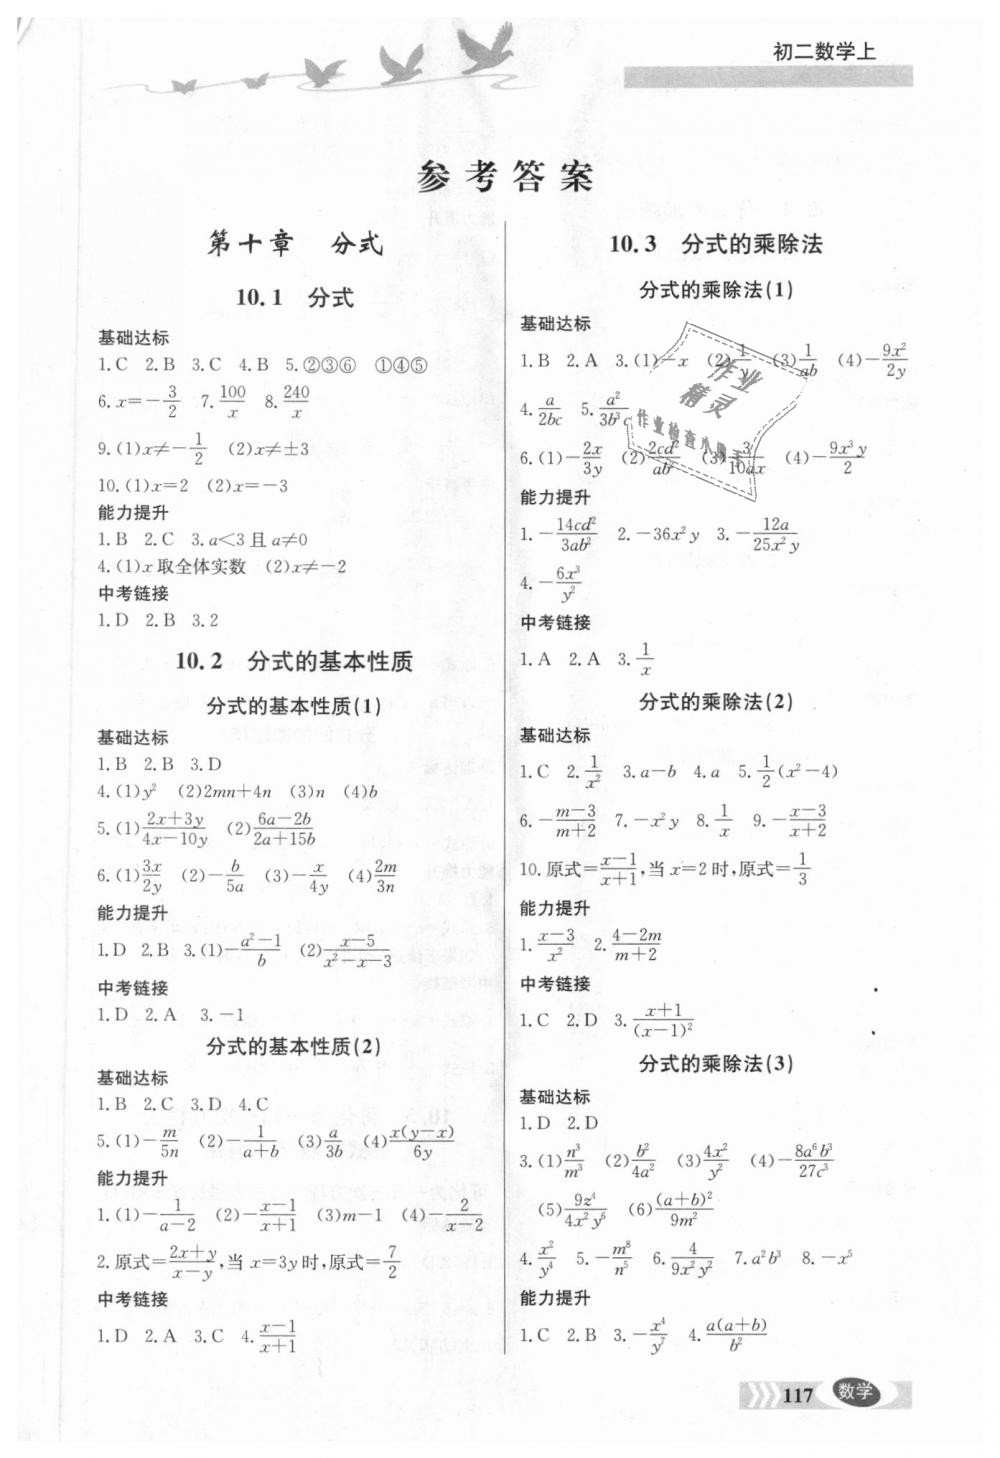 初二数学上
参考答案
第十章 分式
10.1 分式
基础达标
1.C 2.B 3.C 4.B 5.②③⑥ ①④⑤
6.x=-3/2 7.100/x 8.240/x
9.(1)x≠-1/2 (2)x≠±3
10.(1)x=2 (2)x=-3
能力提升
1.B 2.C 3.a<3且a≠0
4.(1)x取全体实数 (2)x≠-2
中考链接
1.D 2.B 3.2
10.2 分式的基本性质
分式的基本性质(1)
基础达标
1.B 2.B 3.D
4.(1)y² (2)2mn+4n (3)n (4)b
5.(1)(2x+3y)/(4x-10y) (2)(6a-2b)/(2a+15b)
6.(1)3x/2y (2)-b/5a (3)-x/4y (4)2m/3n
能力提升
1.D 2.B 3.(1)-(a²-1)/b (2)(x-5)/(x²-x-3)
中考链接
1.D 2.A 3.-1
分式的基本性质(2)
基础达标
1.B 2.C 3.D 4.C
5.(1)-m/5n (2)-1/(a+b) (3)a/3b (4)x(y-x)/6y
能力提升
1.(1)-1/(a-2) (2)-(x-1)/(x+1) (3)m-1 (4)-2/(x-2)
2.原式=(2x+y)/(x-y),当x=3y时,原式=7/2
中考链接
1.D 2.A 3.C 4.(x-1)/(x+1)
10.3 分式的乘除法
分式的乘除法(1)
基础达标
1.B 2.A 3.(1)-x (2)1/y (3)1/ab (4)-9x²/2y
4.a/2bc 5.a²/3b³c
6.(1)-2x/3y (2)2cd²/ab² (3)3/10ax (4)-9x³y/2
作业
精灵
作业检查小助手
能力提升
1.-14cd²/3ab² 2.-36x²y 3.-12a/25x²y
4.-6x³/y²
中考链接
1.A 2.A 3.1/x
分式的乘除法(2)
基础达标
1.C 2.1/x² 3.a-b 4.a 5.1/2(x²-4)
6.-(m-3)/(m+2) 7.-x²y 8.1/x 9.-(x-3)/(x+2)
10.原式=(x-1)/(x+1),当x=2时,原式=1/3
能力提升
1.(x-3)/x² 2.(4-2m)/(m+2)
中考链接
1.C 2.D 3.(x+1)/(x-1)²
分式的乘除法(3)
基础达标
1.D 2.D
3.(1)n³/m³ (2)b²/4a² (3)4x²/y² (4)-8a⁶b³/27c³
(5)9z⁴/4x²y⁶ (6)(a+b)²/9m²
4.x²/y⁴ 5.-m⁸/n⁵ 6.4/9x²y² 7.a²b³ 8.-x⁵
能力提升
1.C 2.B 3.-x⁴/y⁷ 4.a(a+b)/b²
117 数学